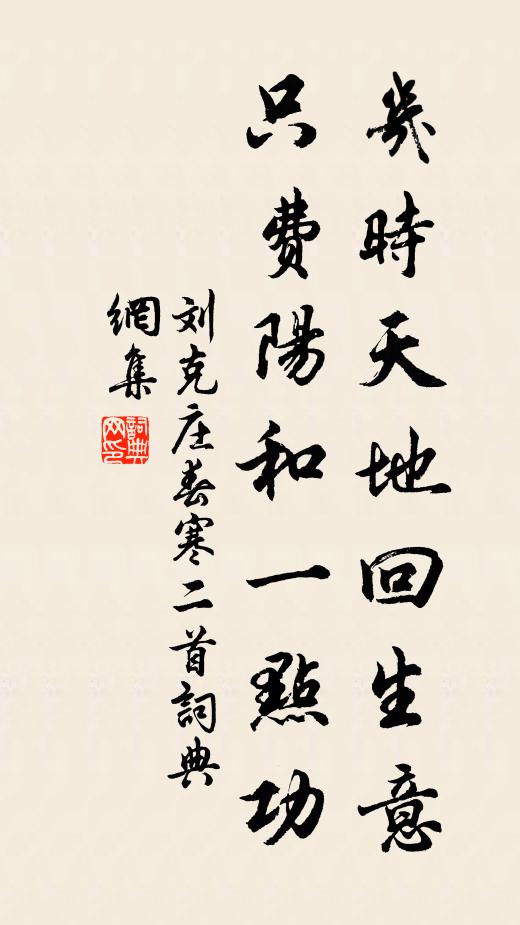 幾時天地回生意
只費陽和一點功
刘克庄春寒二首詞典
網集
詞典
网印